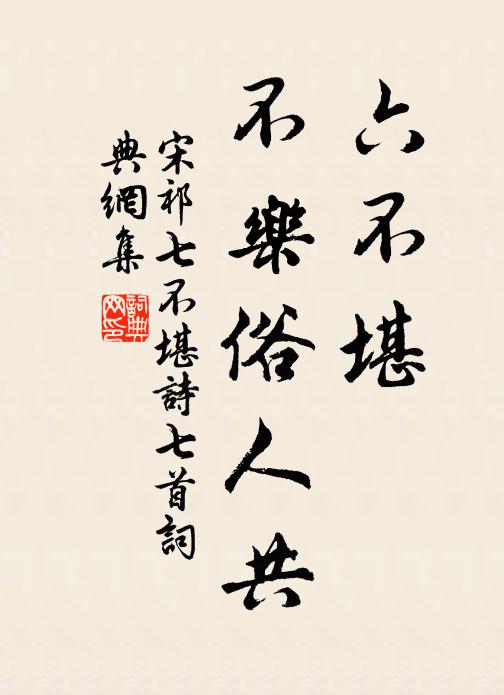 六不堪
不樂俗人共
宋祁七不堪詩七首詞
典網集
詞典
网印